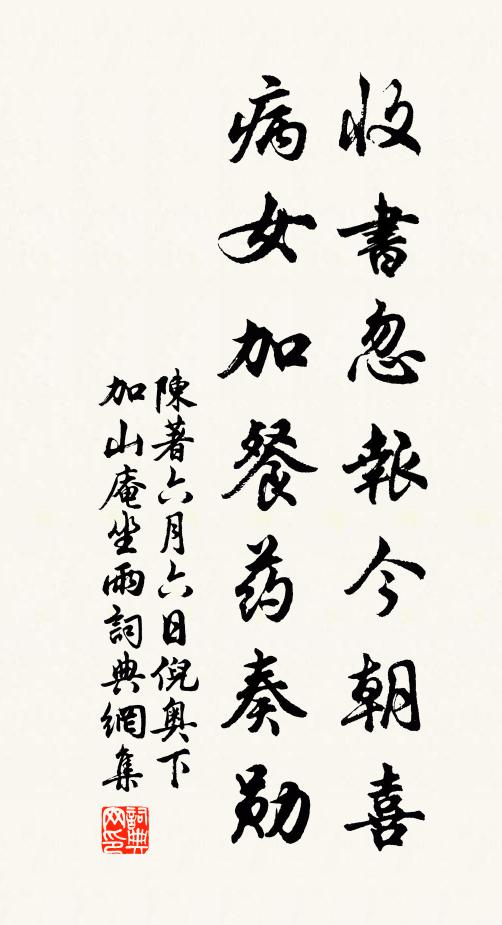 收書忽報今朝喜
病女加餐药奏勋
陳著六月六日倪奥下
加山庵坐雨詞典網集
詞典网印